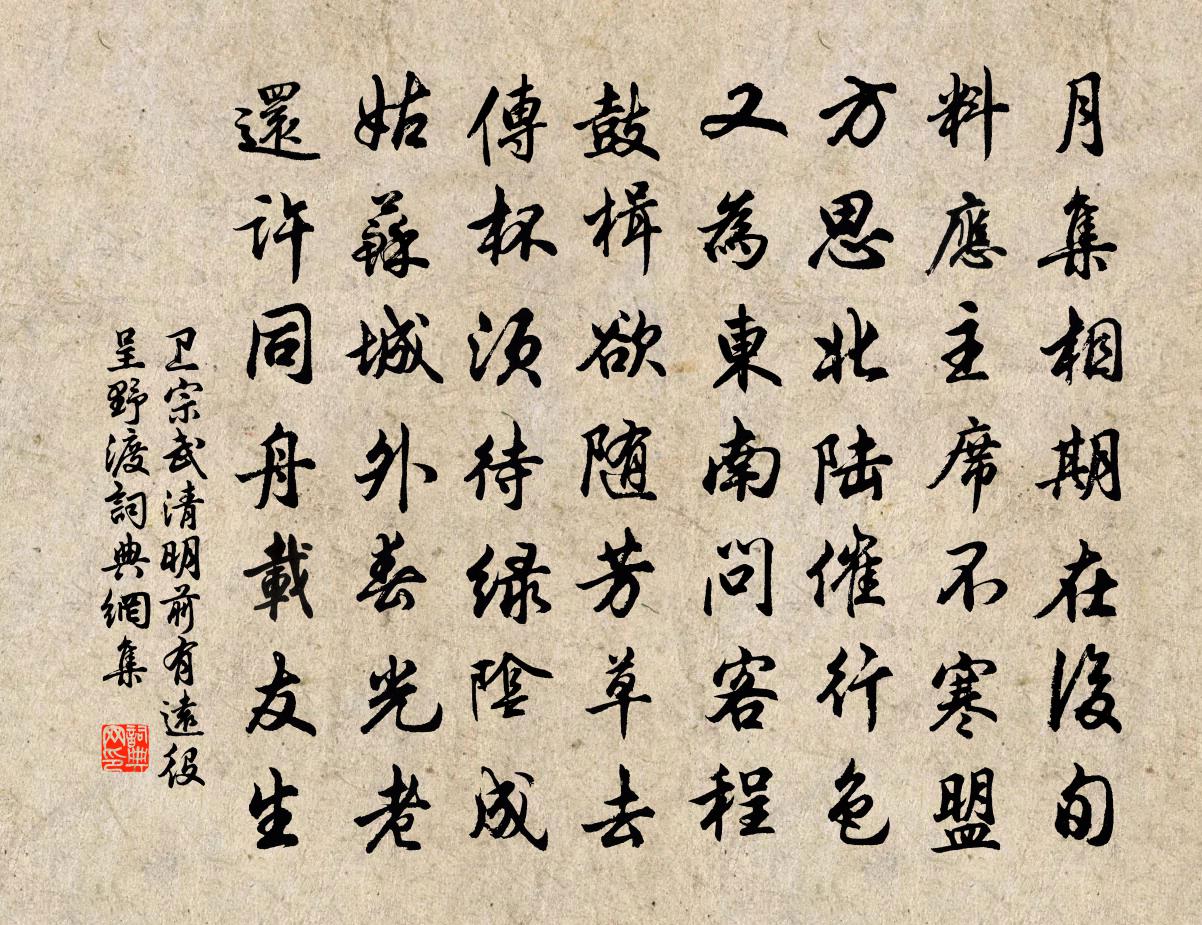 月集相期在後旬
料應主席不寒盟
方思北陆催行色
又為東南問客程
鼓楫欲随芳草去
傳杯須待绿陰成
姑蘇城外春光老
還许同舟載友生
卫宗武清明前有遠役
呈野渡詞典網集
詞典网印